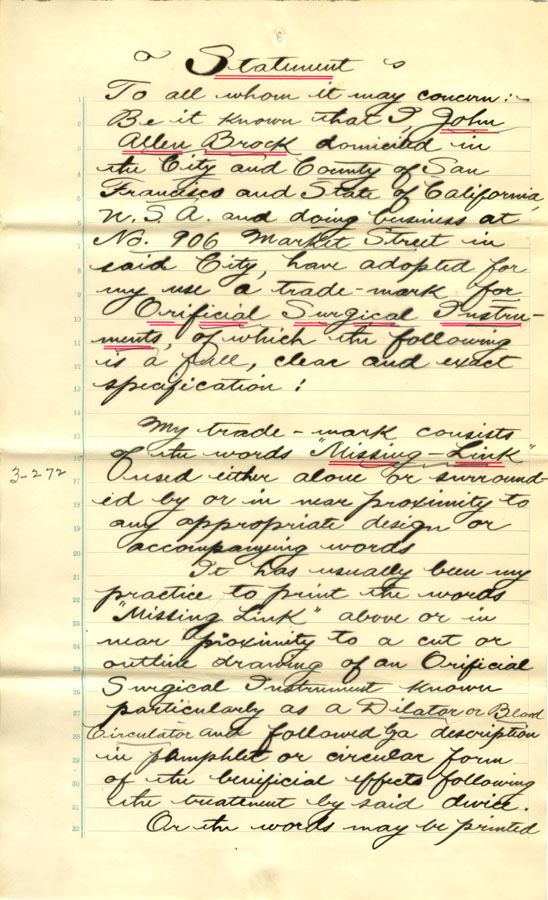 Statement
To all whom it may concern:
Be it known that I, John
Allen Brock domiciled in
the City and County of San
Francisco and State of California,
U.S.A. and doing business at
No. 906 Market Street in
said City, have adopted for
my use a trade-mark for
Orificial Surgical Instru-
ments, of which the following
is a full, clear and exact
specification:
My trade-mark consists
of the words "Missing-Link"
used either alone or surround-
3-272
ed by or in near proximity to
any appropriate design or
accompanying words
It has usually been my
practice to print the words
"Missing Link" above or in
near proximity to a cut or
outline drawing of an Orificial
Surgical Instrument known
particularly as a Dilator or Blood
Circulator and followed by a description
in pamphlet or circular form
of the benificial effects following
the treatement by said divice.
Or the words may be printed
1
2
3
4
5
6
7
8
9
10
11
12
13
14
15
16
17
18
19
20
21
22
23
24
25
26
27
28
29
30
31
32